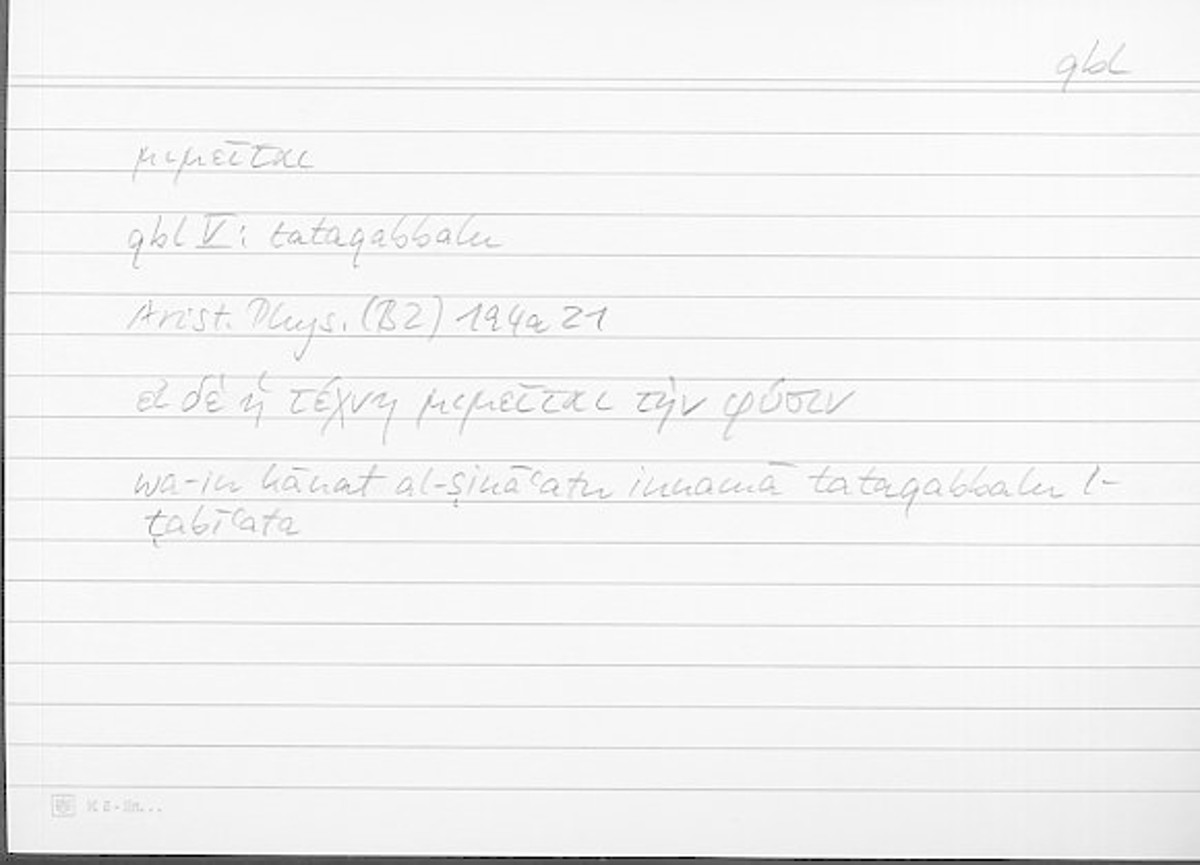 qbl
μιμεῖται
qbl V: tataqabbalu
Arist. Phys. (B2) 194a21
εἰ δὲ ἡ τέχνη μιμεῖται τὴν φύσιν
wa-in kānat al-ṣināʿatu innamā tataqabbalu l-
ṭabīʿata